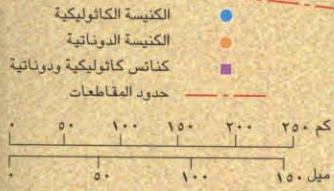 الكنيسة الكاثوليكية
الكنيسة الدوناتية
كنائس كاثوليكية ودوناتية
حدود المقاطعات
٠ ٥٠ ١٠٠ ١٥٠ ٢٠٠ ٢٥٠ كم
٠ ٥٠ ١٠٠ ١٥٠ ميل